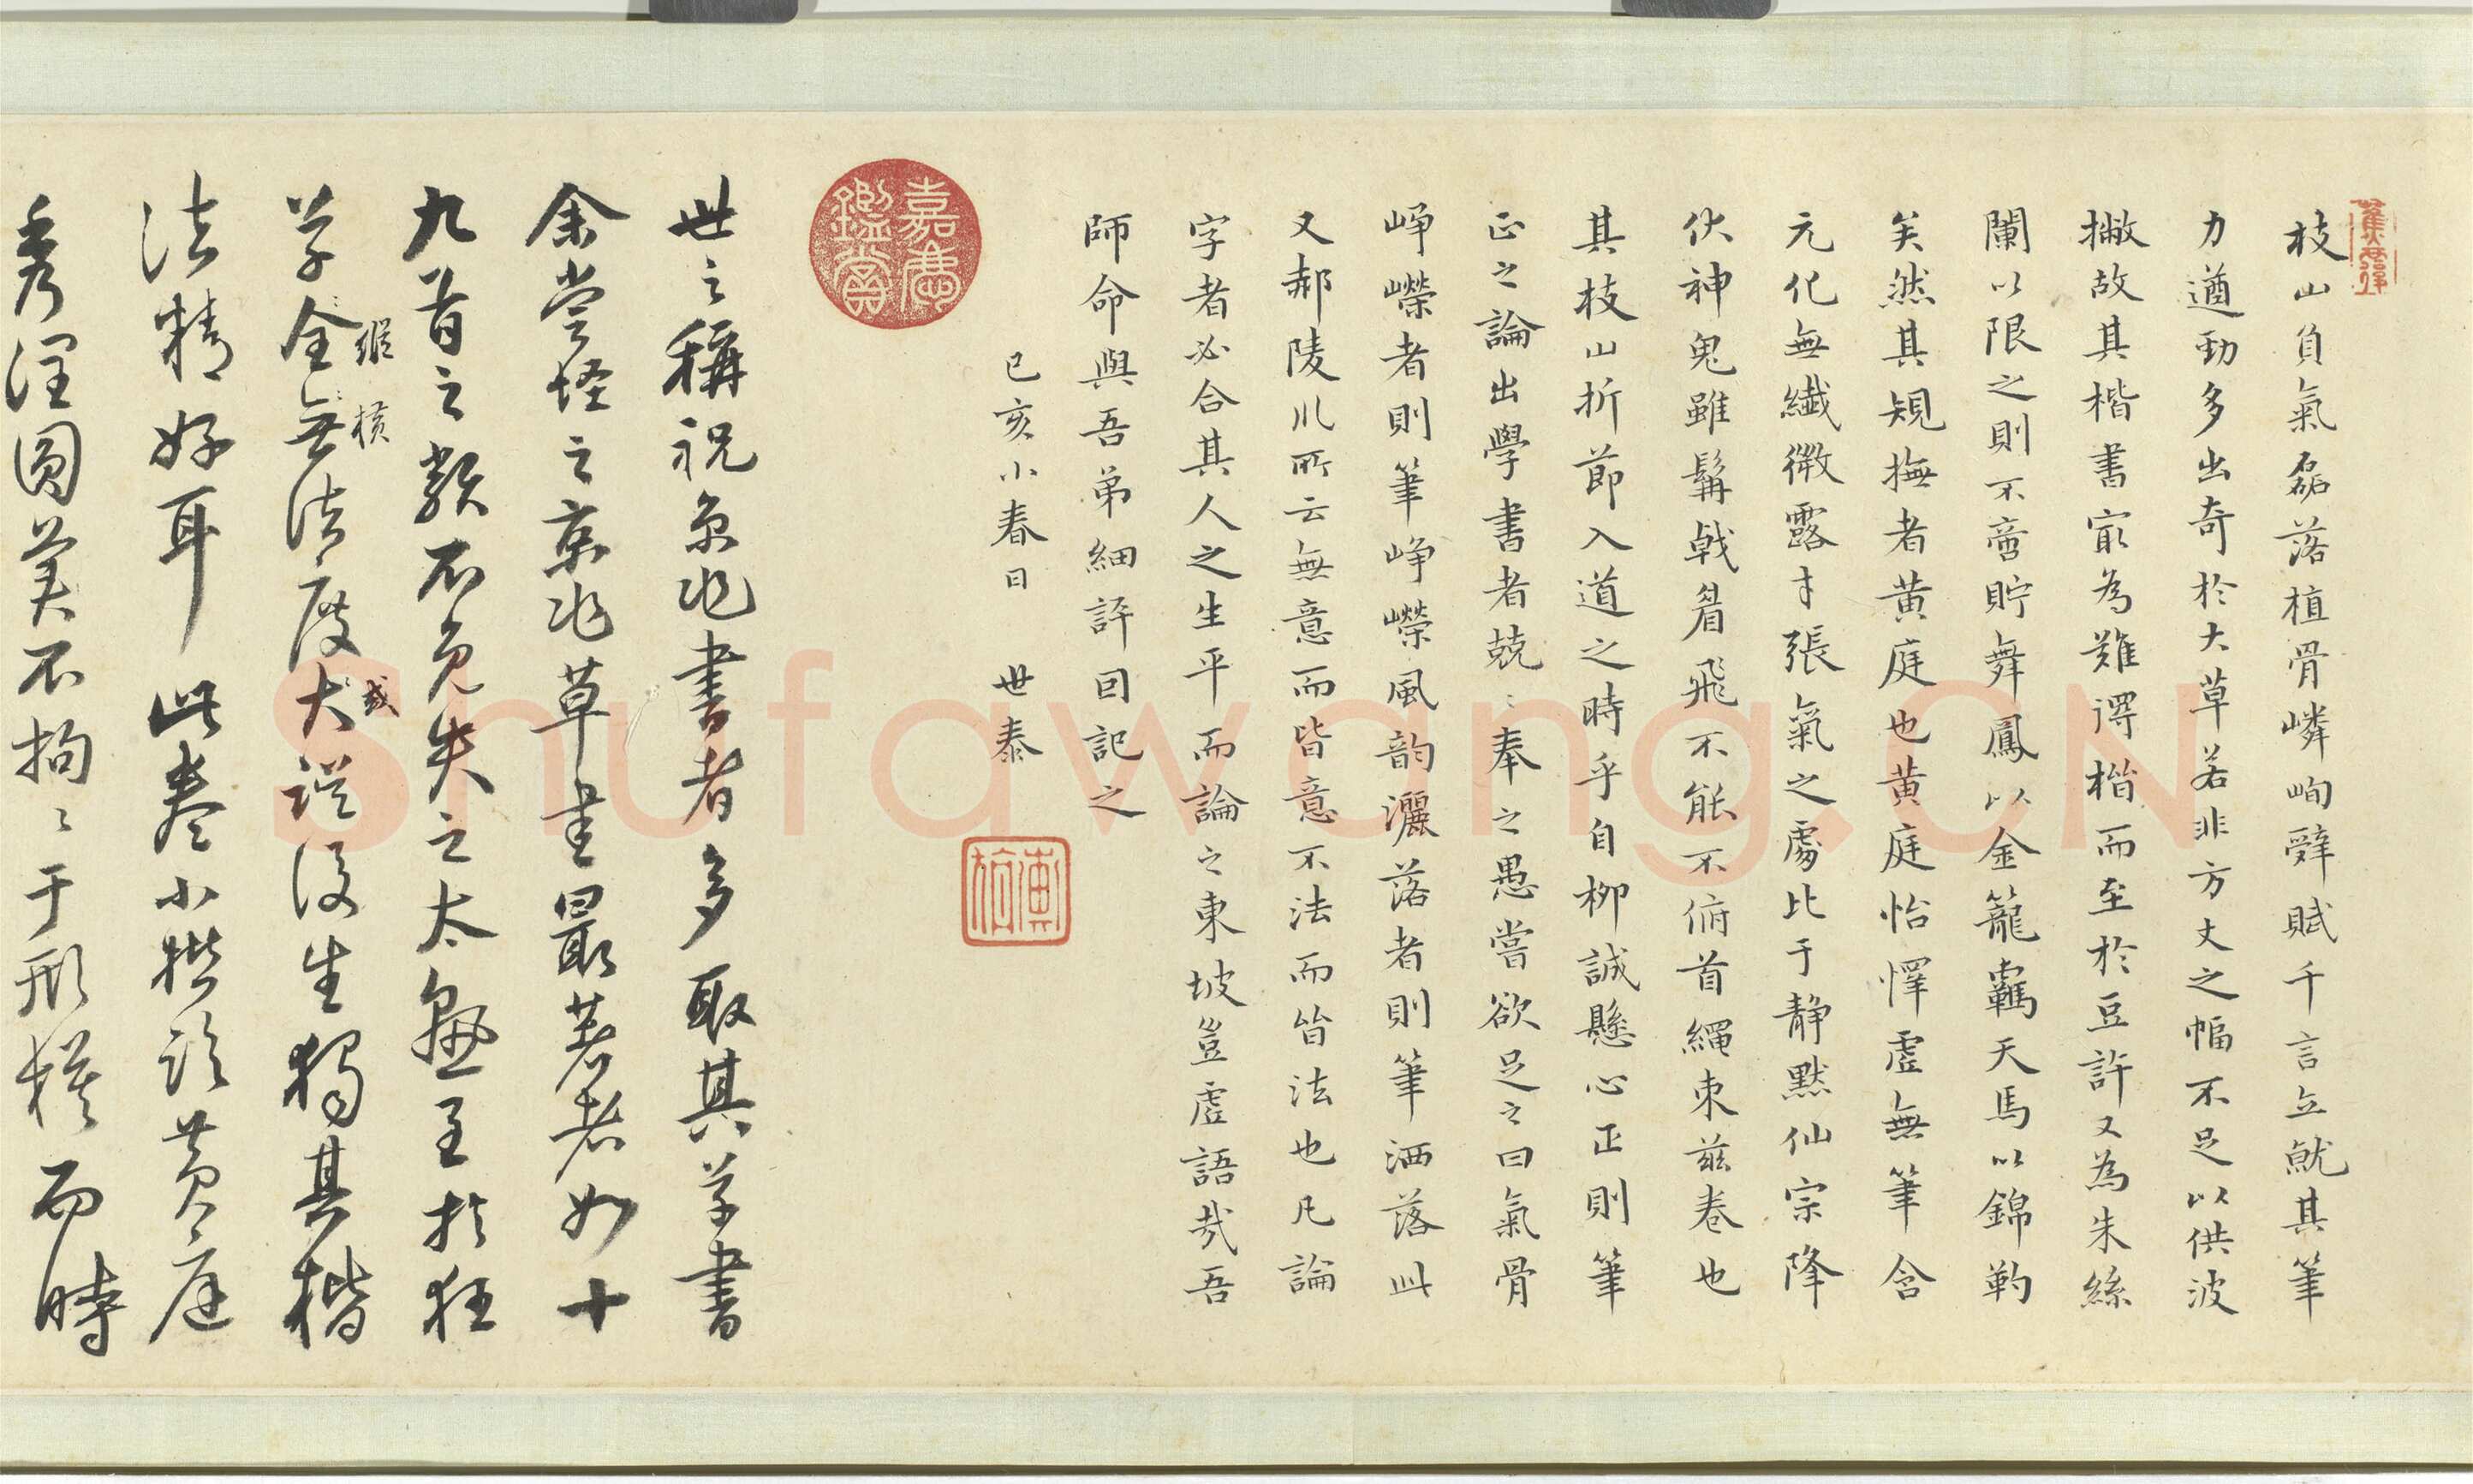 枝山負氣磊落植骨嶙峋辭賦千言立就其筆
力遒勁多出奇於大草若非方丈之幅不足以供波
撇故其楷書寂為難得楷而至於豆許又為朱絲
闌以限之則不啻貯舞鳳以金籠羈天馬以錦靮
矣然其規撫者黄庭也黄庭怡懌虛無筆含
元化無纖微露才張氣之處比于静黙仙宗降
伏神鬼雖髯戟眉飛不能不俯首繩束兹卷也
其枝山折節入道之時乎自柳誠懸心正則筆
正之論出學書者兢〻奉之愚嘗欲足之曰氣骨
崢嶸者則筆崢嶸風韵灑落者則筆洒落此
又郝陵川所云無意而皆意不法而皆法也凡論
字者必合其人之生平而論之東坡豈虛語哉吾
師命與吾弟細評因記之
已亥小春日 世泰
嘉慶鑑賞
世之稱祝京兆書者多取其草書
余嘗怪之京兆草書最著者如十
九首之類不免失之太縱至於狂
草全無法度大或縱橫誤後生獨其楷
法精好耳此卷小楷臨黄庭
秀潤圓美不拘〻于形模而時
Shufawang.CN